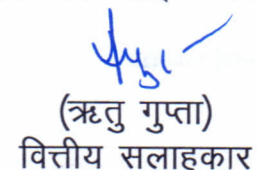 (ऋतु गुप्ता)
वित्तीय सलाहकार